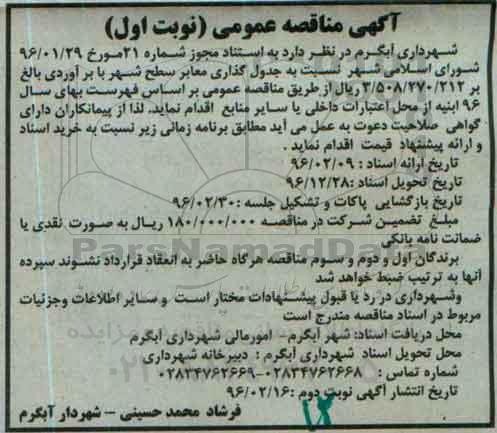 آگهی مناقصه عمومی (نوبت اول)
شهرداری آبگرم در نظر دارد به استناد مجوز شماره ۲۱مورخ ۹۶/۰۱/۲۹
شورای اسلامی شهر نسبت به جدول گذاری معابر سطح شهر با بر آوردی بالغ
بر ۳/۵۰۸/۲۷۰/۲۱۲ ریال از طریق مناقصه عمومی بر اساس فهرست بهای سال
۹۶ ابنیه از محل اعتبارات داخلی یا سایر منابع اقدام نماید. لذا از پیمانکاران دارای
گواهی صلاحیت دعوت به عمل می آید مطابق برنامه زمانی زیر نسبت به خرید اسناد
و ارائه پیشنهاد قیمت اقدام نماید .
تاریخ ارائه اسناد : ۹۶/۰۲/۰۹
تاریخ تحویل اسناد :۹۶/۱۲/۲۸
تاریخ بازگشایی پاکات و تشکیل جلسه :۹۶/۰۲/۳۰
مبلغ تضمین شرکت در مناقصه ۱۸۰/۰۰۰/۰۰۰ ریال به صورت نقدی یا
ضمانت نامه بانکی
برندگان اول و دوم و سوم مناقصه هرگاه حاضر به انعقاد قرارداد نشوند سپرده
آنها به ترتیب ضبط خواهد شد
وشهرداری در رد یا قبول پیشنهادات مختار است و سایر اطلاعات وجزئیات
مربوط در اسناد مناقصه مندرج است
محل دریافت اسناد: شهر آبگرم - امورمالی شهرداری آبگرم
محل تحویل اسناد شهرداری آبگرم : دبیرخانه شهرداری
شماره تماس : ۰۲۸۳۴۷۶۲۶۶۸-۰۲۸۳۴۷۶۲۶۶۹
تاریخ انتشار آگهی نوبت دوم :۹۶/۰۲/۱۶
فرشاد محمد حسینی - شهردار آبگرم
ParsNamadData